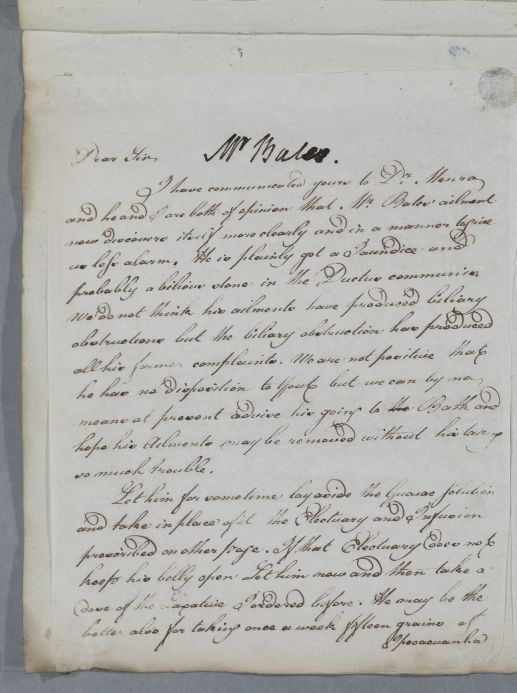 Mr Bates.
Dear Sir,
I have communicated yours to Dr. Monro
and he and I are both of opinion that Mr. Bates' ailment
now discovers itself more clearly and in a manner to give
us less alarm. He is plainly got a Jaundice and
probably a bilious stone in the Ductus communis.
We do not think his ailments have produced biliary
obstructions but the biliary obstruction has produced
all his former complaints. We are not positive that
he has no disposition to Gout but we can by no
means at present advise his going to the Bath and
hope his Ailments may be removed without his
so much trouble.
Let him for sometime lay aside the Guaiac Solution
and take in place of it the Electuary and Infusion
prescribed on other page. If that Electuary does not
keep his belly open Let him now and then take a
dose of the Laxative I ordered before. He may be the
better also for taking once a week fifteen grains of
Ipecacuanha